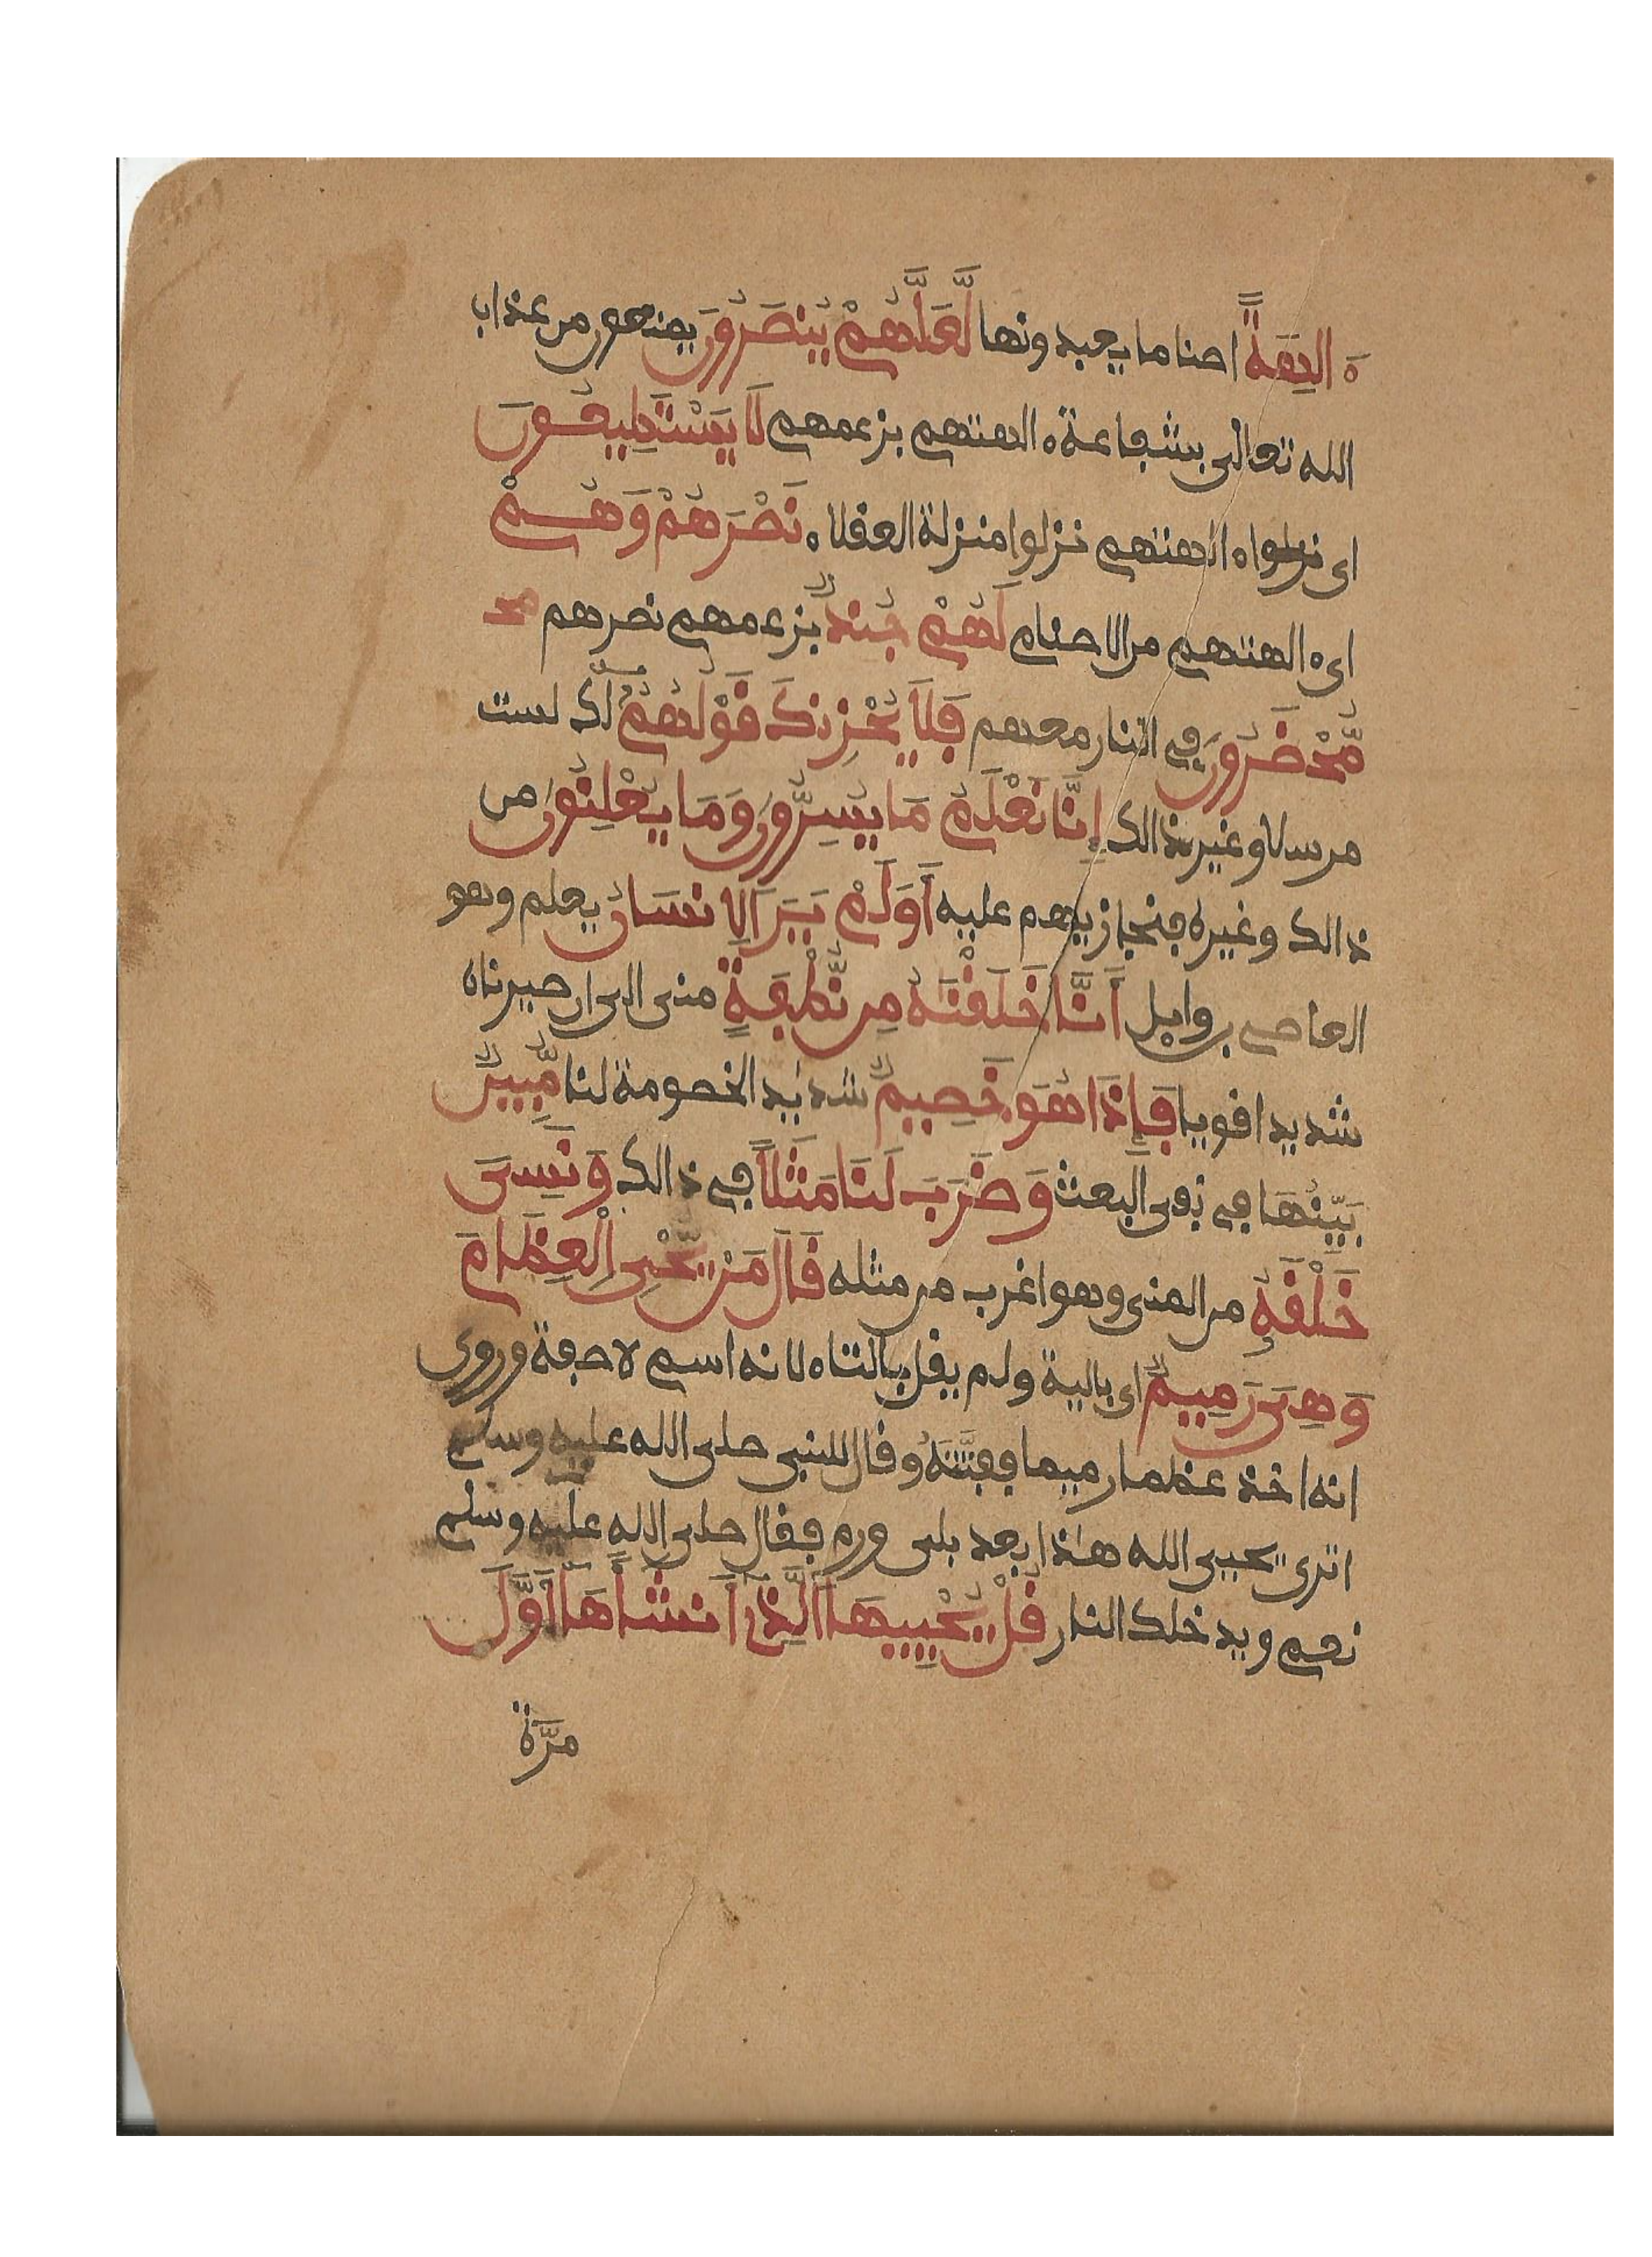 ه الِهَةً اصناما يعبدونها لَّعَلَّهُمْ يُنصَرُونَ يمنعون من عذاب
الله تعالى بشفاعة ه الهتهم بزعمهم لَا يَسْتَطِيعُونَ
اى الهتهم نزلوا منزلة العقلاء نَصْرَهُمْ وَهُمْ
اى ه الهتهم من الاصنام لَهُمْ جُندٌ بزعمهم نصرهم
مُّحْضَرُونَ في النار معهم فَلَا يُحْزِنكَ قَوْلُهُمْ لك لست
مرسلا وغير ذالك إِنَّا نَعْلَمُ مَا يُسِرُّونَ وَمَا يُعْلِنُونَ من
ذالك وغيره فنجازيهم عليه أَوَلَمْ يَرَ الِانسَانُ يعلم وهو
العاصي بن وايل أَنَّا خَلَقْنَٰهُ مِن نُّطْفَةٍ منى الى ان صيرناه
شديدا قويا فَإِذَا هُوَ خَصِيمٌ شديد الخصومة لنا مُّبِينٌ
بَيِّنُهَا في نفى البعث وَضَرَبَ لَنَا مَثَلًا في ذالك وَنَسِىَ
خَلْقَهُ من المنى وهو اغرب من مثله قَالَ مَنْ يُّحْىِ الْعِظَٰمَ
وَهِىَ رَمِيمٌ اى بالية ولم يقل بالتاء لانه اسم لا صفة وروى
انه اخذ عظما رميما ففتَّتَهُ وقال للنبى صلى الله عليه وسلم
اترى يحيى الله هٰذا بعد بلى ورم فقال صلى الله عليه وسلم
نعم ويدخلك النار قُلْ يُحْيِيهَا الَّذِى أَنشَأَهَا أَوَّلَ
مَرَّةٍ